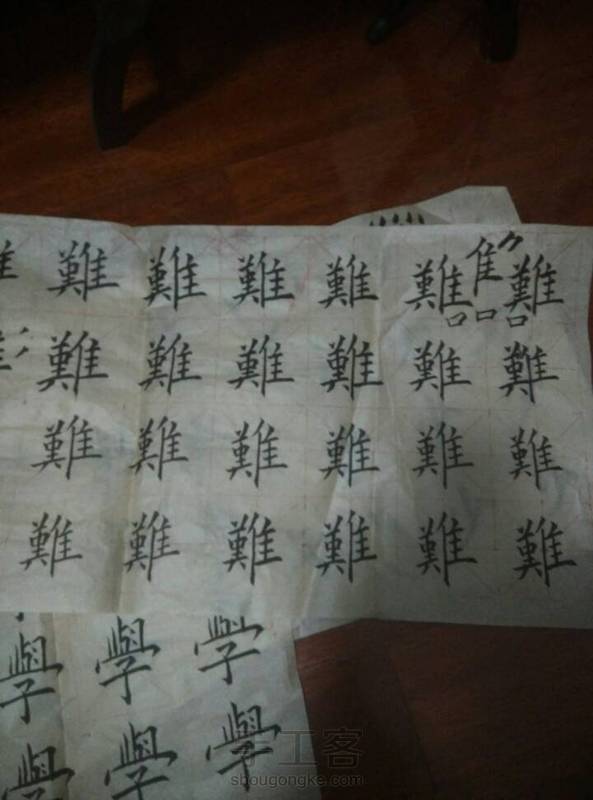 難 難 難 難 難 隹 難
口 口 口
難 難 難 難 難 難
難 難 難 難 難 難
難 難 難 難 難 難
學 學 學
學 學 學
手工客
shougongke.com